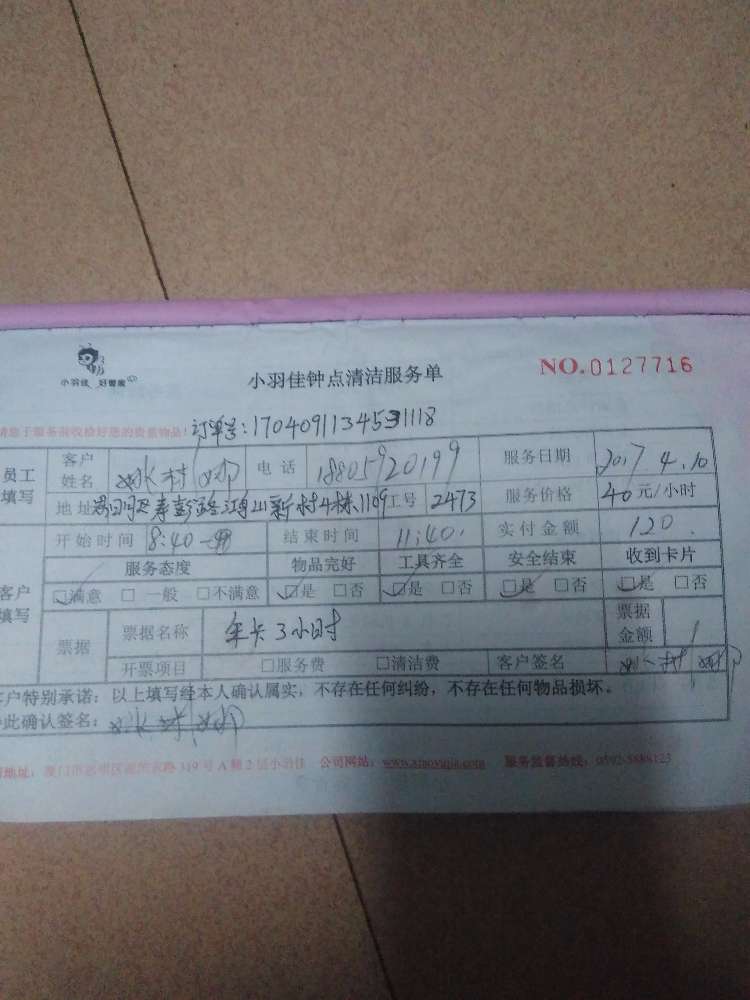 小羽佳 好管家
小羽佳钟点清洁服务单
NO.0127716
请您于服务前收检好您的贵重物品!
订单号:1704091134531118
员工填写 客户姓名 电话 18805920199 服务日期 2017.4.10
地址 江山新村4栋1109 工号 2473 服务价格 40元/小时
开始时间 8:40 结束时间 11:40. 实付金额 120.
客户填写 服务态度 物品完好 工具齐全 安全结束 收到卡片
☑满意 □一般 □不满意 ☑是 □否 ☑是 □否 ☑是 □否 ☑是 □否
票据 票据名称 年卡3小时 票据金额
开票项目 □服务费 □清洁费 客户签名
客户特别承诺:以上填写经本人确认属实,不存在任何纠纷,不存在任何物品损坏。
此确认签名:
地址:厦门市思明区 319号A幢2层小羽佳 公司网站:www.xiaoyujia.com 服务监督热线:0592-5888123